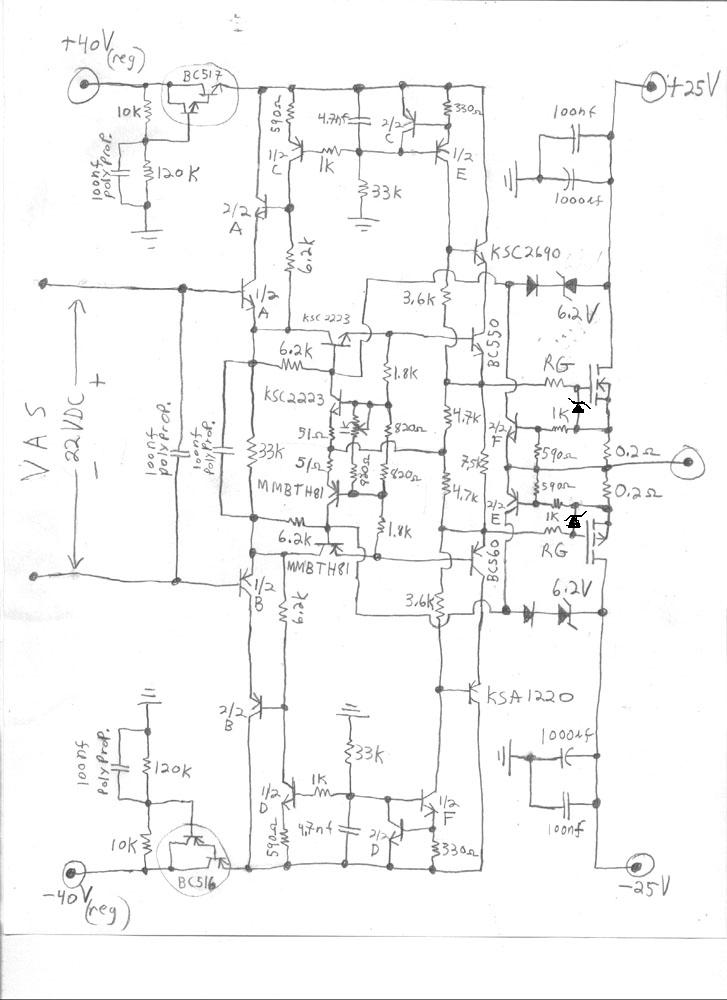 +40V
(reg)
BC517
+25V
10K
590Ω
4.7nf
2/2
C
330Ω
100nf
100nf
polyprop.
120K
1/2
C
1K
1/2
E
33K
1000uf
2/2
A
6.2K
KSC2690
1/2
A
3.6K
6.2V
KSC2223
BC550
6.2K
RG
KSC2223
1.8K
VAS
22VDC
+
-
100nf
polyprop.
100nf
polyprop.
33K
51Ω
820Ω
4.7K
2/2
F
1K
590Ω
0.2Ω
51Ω
820Ω
820Ω
7.5K
MMBTH81
4.7K
2/2
E
590Ω
1K
0.2Ω
6.2K
1.8K
RG
MMBTH81
BC560
1/2
B
6.2K
3.6K
6.2V
2/2
B
KSA1220
100nf
polyprop.
120K
33K
1000uf
1/2
D
1K
1/2
F
10K
590Ω
4.7nf
2/2
D
330Ω
100nf
BC516
-40V
(reg)
-25V